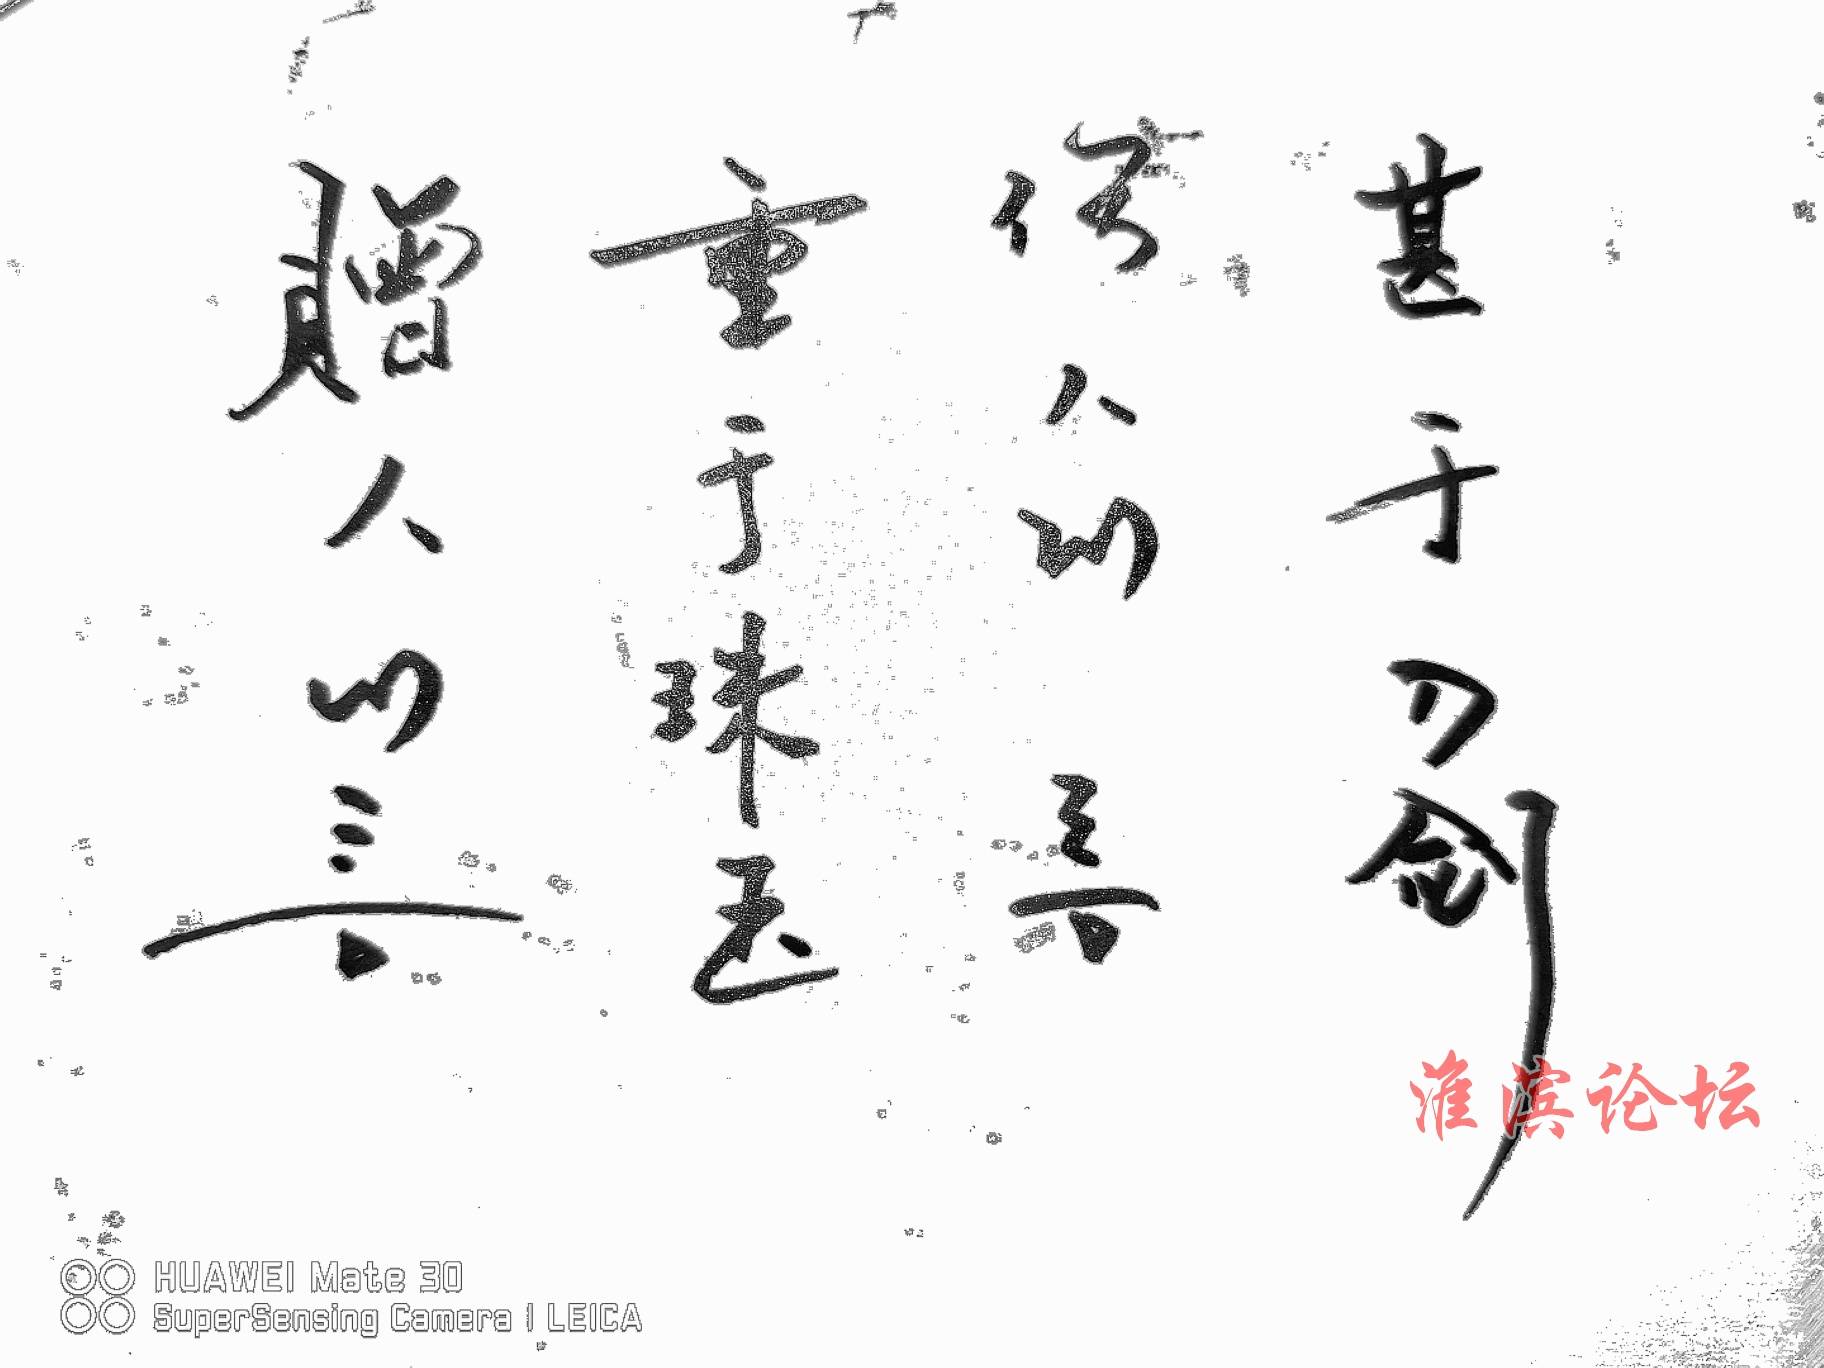 贈人以言
重于珠玉
伤人以言
甚于刀剑
淮滨论坛
HUAWEI Mate 30
SuperSensing Camera | LEICA